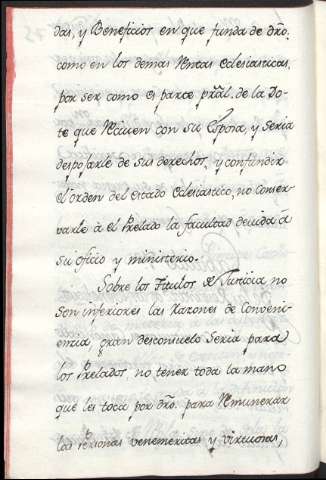 das, y Beneficios en que funda de dro.
como en los demas Rentas eclesiasticas,
por ser como es parte prãl. de la Do-
te que Reciven con su Esposa, y seria
despojarle de sus derechos, y confundir
el orden del estado eclesiastico, no conser-
varle à el Prelado la facultad devida à
su oficio y ministerio.
Sobre los Titulos de Justicia, no
son inferiores las Razones de Conveni-
encia gran desconsuelo seria para
los Prelados, no tener toda la mano
que les toca por dro. para Remunerar
las personas venemeritas y virtuosas,